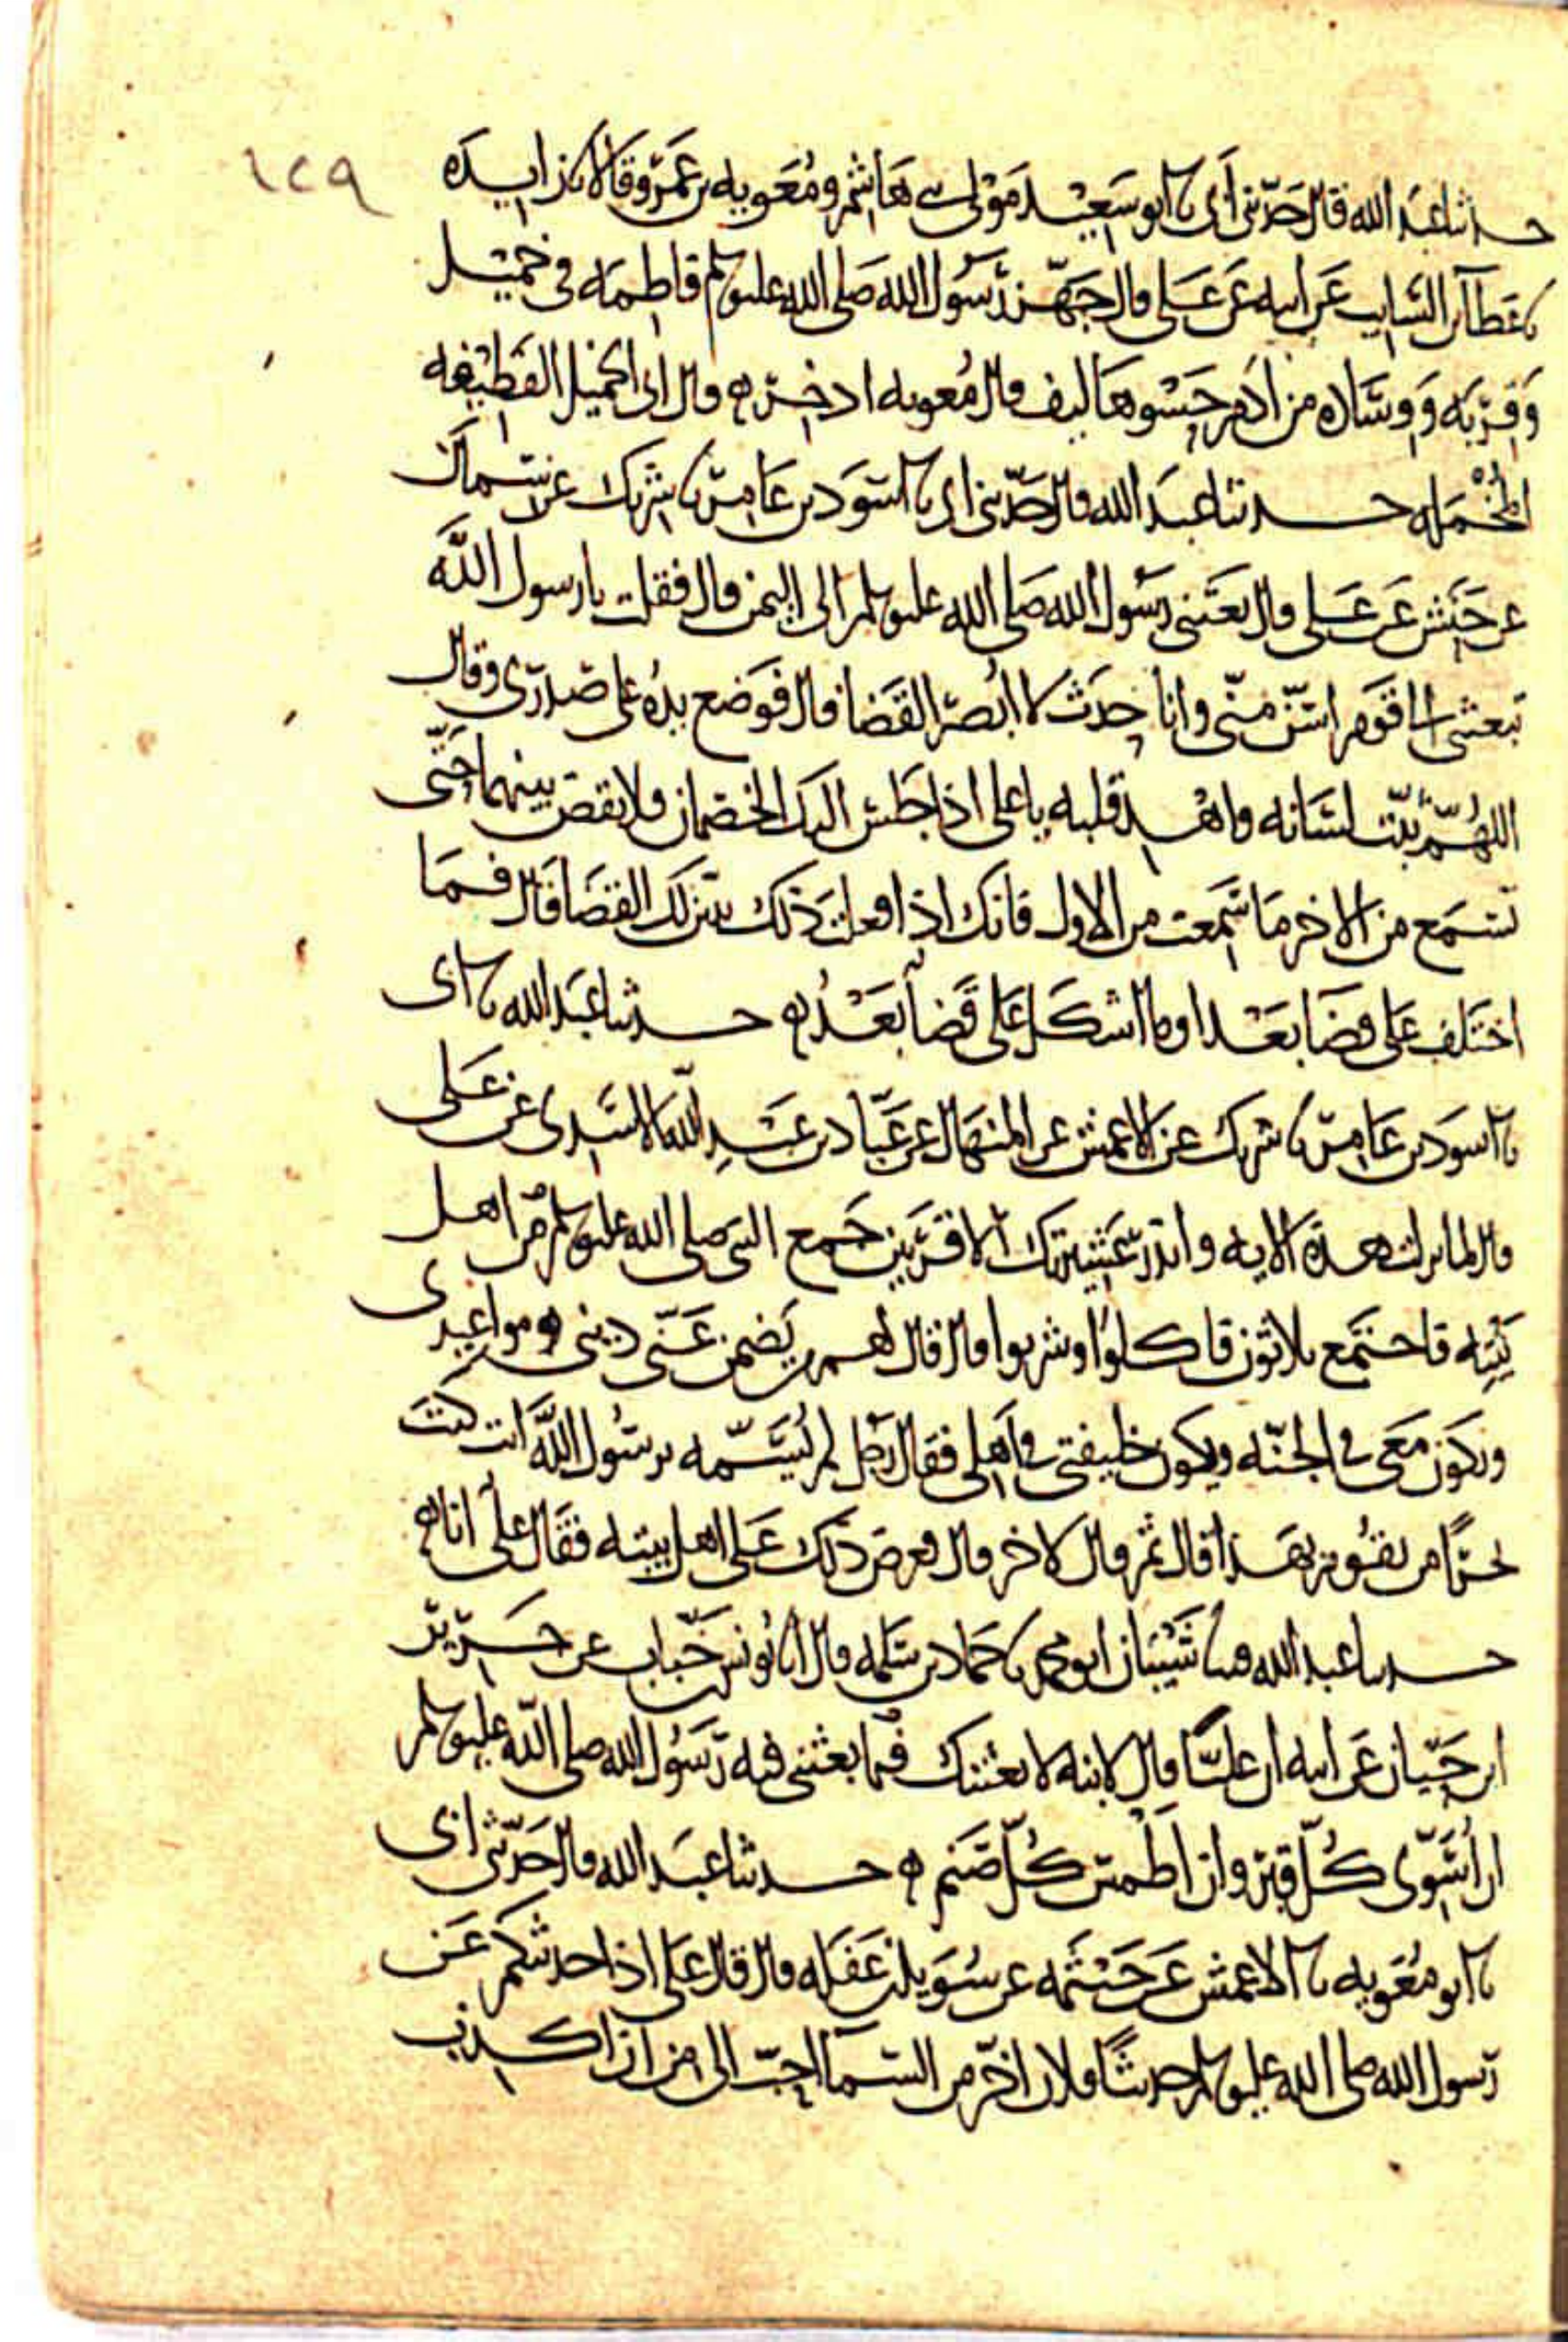 ١٢٩
حدثنا عبد الله قال حدثني أبي نا ابو سعيد مولى بني هاشم ومعويه بن عمرو قالا نا زايده
نا عطا بن السايب عن ابيه عن علي قال جهز رسول الله صلى الله عليه وسلم فاطمه في خميل
وقربه ووساده من ادم حشوها ليف قال معويه اذخر قال ابي الخميل القطيفه
المخمله حدثنا عبد الله قال حدثني ابي نا اسود بن عامر نا شريك عن سماك
عن حنش عن علي قال بعثني رسول الله صلى الله عليه وسلم الى اليمن قال فقلت يا رسول الله
تبعثني الى قوم اسن مني وانا حدث لا ابصر القضا قال فوضع يده على صدري وقال
اللهم ثبت لسانه واهد قلبه يا علي اذا جلس اليك الخصمان فلا تقض بينهما حتى
تسمع من الاخر ما سمعت من الاول فانك اذا فعلت ذلك تبين لك القضا قال فما
اختلف علي قضا بعد او ما اشكل علي قضا بعد حدثنا عبد الله نا ابي
نا اسود بن عامر نا شريك عن الاعمش عن المنهال عن عباد بن عبد الله الاسدي عن علي
قال لما نزلت هذه الايه وانذر عشيرتك الاقربين جمع النبي صلى الله عليه وسلم من اهل
بيته فاجتمع ثلاثون فاكلوا وشربوا قال فقال لهم من يضمن عني ديني ومواعيدي
ويكون معي في الجنه ويكون خليفتي في اهلي فقال رجل لم يسمه يرسول الله انت كنت
بحرا من يقوم بهذا قال ثم قال لاخر قال فعرض ذلك على اهل بيته فقال علي انا
حدثنا عبد الله شيبان ابو محمد نا حماد بن سلمه قال انا يونس خباب عن جرير
ابن حيان عن ابيه ان عليا قال لابنه لابعثنك فيما بعثني فيه رسول الله صلى الله عليه وسلم
ان اسوي كل قبر وان اطمس كل صنم حدثنا عبد الله قال حدثني ابي
نا ابو معويه نا الاعمش عن خيثمه عن سويد بن غفله قال قال علي اذا حدثتكم عن
رسول الله صلى الله عليه وسلم حديثا فلان اخر من السما احب الي من ان اكذب